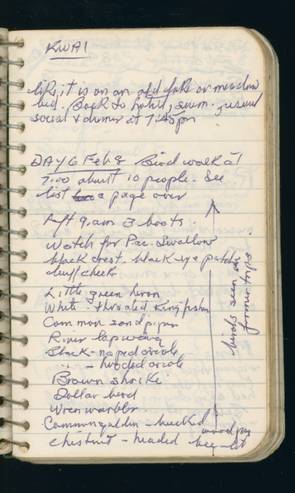 KWAI
like, it is on an old lake or meadow
bed. Back to hotel, swim.
social & dinner at 7:45pm
DAY 6 Feb 8 Bird walk at
7:00 about 10 people. See
list a page over
Aft 9 am 3 boats.
Watch for Pac. Swallow
black crest. black eye patch
buff cheek
Little green heron
White-throated Kingfisher
Common sandpiper
River lapwing
Black-naped oriole
- hooded oriole
Brown shrike
Dollar bird
Wren warbler
Common golden-backed woodpeg
chestnut-headed bee-eat
from trip